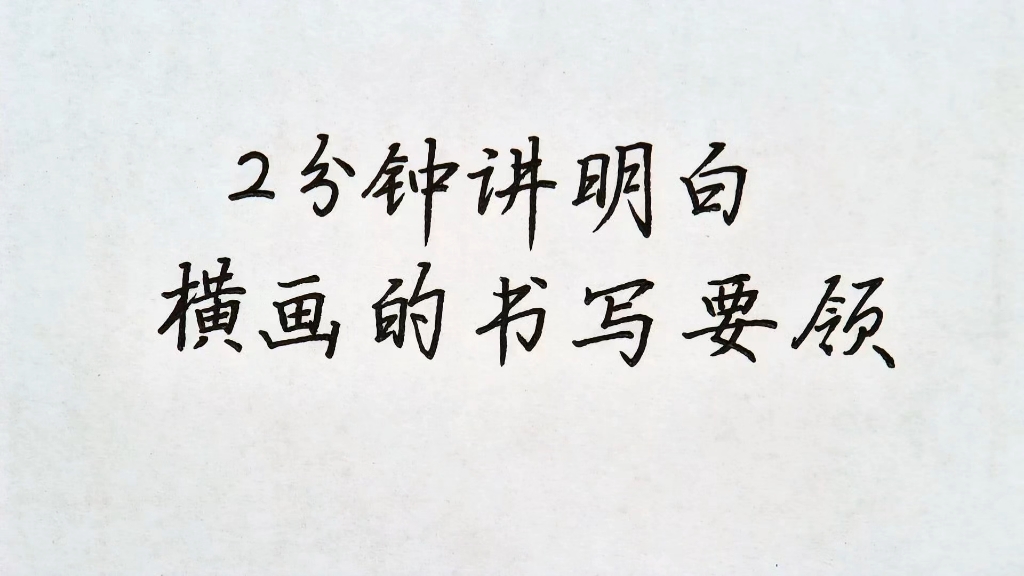 2分钟讲明白
横画的书写要领